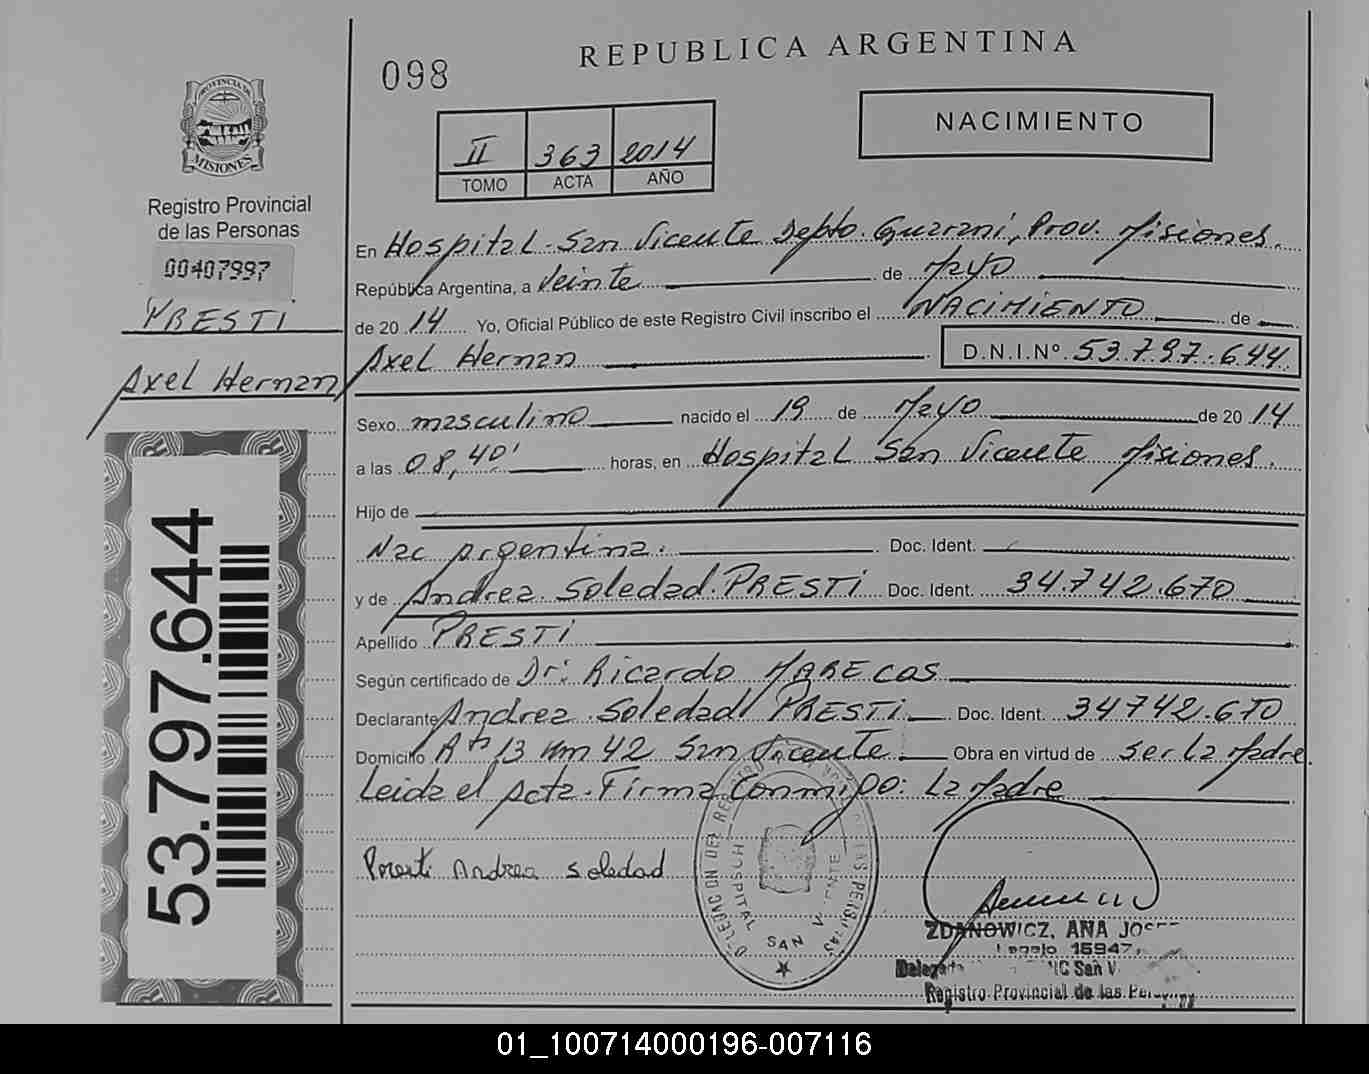 098
REPUBLICA ARGENTINA
PROVINCIA DE
MISIONES
Registro Provincial
de las Personas
00407997
PRESTI
Axel Hernan
53.797.644
II 363 2014
TOMO ACTA AÑO
NACIMIENTO
En Hospital San Vicente Depto. Guarani, Prov. Misiones
República Argentina, a Veinte de Mayo
de 2014 Yo, Oficial Público de este Registro Civil inscribo el NACIMIENTO de
Axel Hernan D.N.I.Nº 53.797.644
Sexo masculino nacido el 19 de Mayo de 2014
a las 08,40' horas, en Hospital San Vicente Misiones.
Hijo de
Nac Argentina. Doc. Ident.
y de Andrea Soledad PRESTI Doc. Ident. 34.742.670
Apellido PRESTI
Según certificado de Dr: Ricardo MARECOS
Declarante Andrea Soledad PRESTI Doc. Ident. 34742.670
Domicilio 13 km 42 San Vicente Obra en virtud de ser la Madre
Leida el Acta. Firma Conmigo: La Madre
Presti Andrea Soledad
HOSPITAL SAN VICENTE
ZDANOWICZ, ANA
Legajo 15947
San V
Registro Provincial de las
01_100714000196-007116